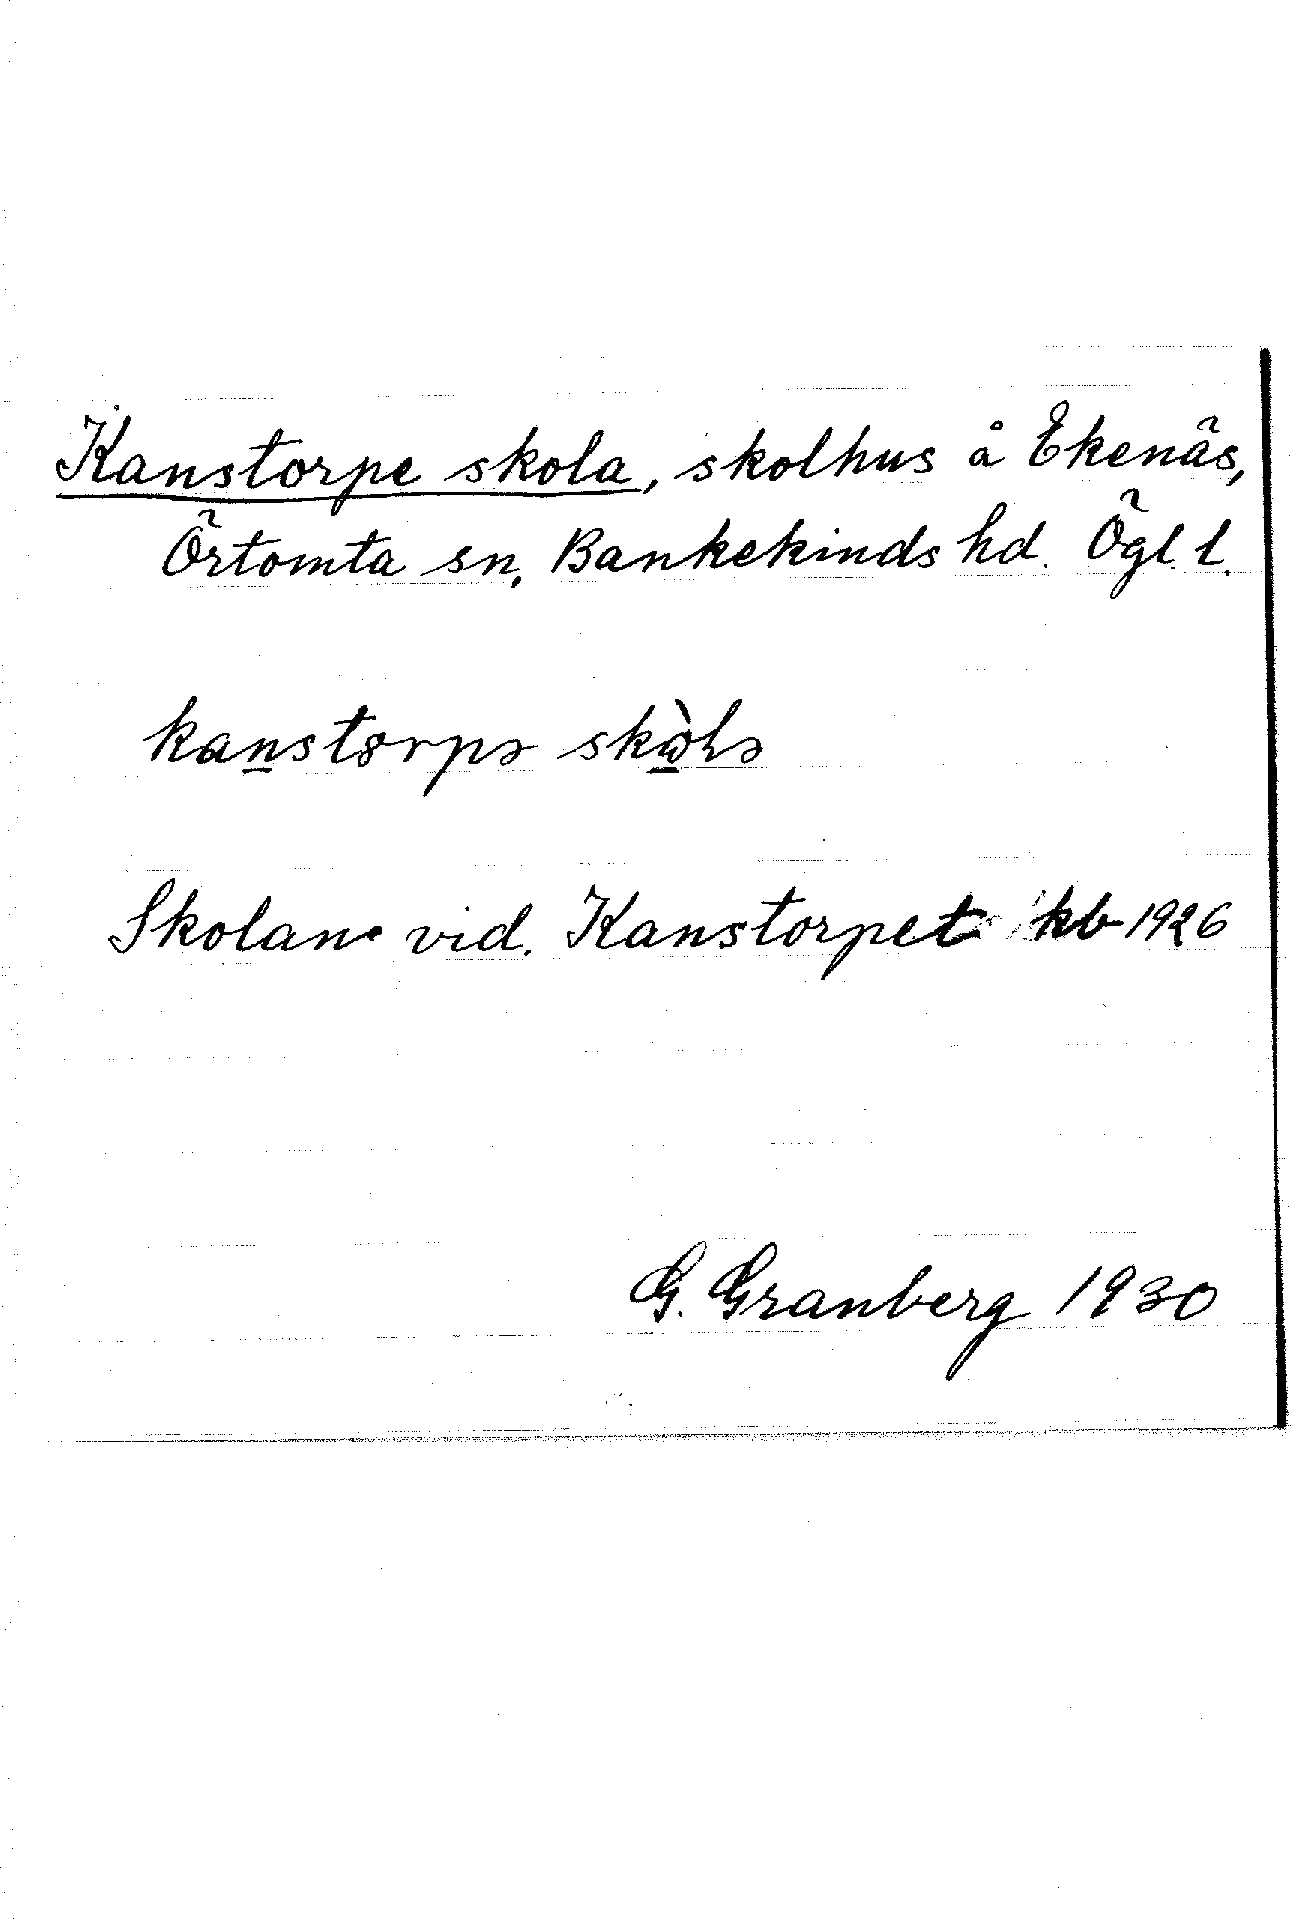 Kanstorpe skola, skolhus å Ekenäs,
Örtomta sn, Bankekinds hd. Ögl. l.
kanstørpə skòlə
Skolan vid. Kanstorpet kb 1926
G. Granberg 1930